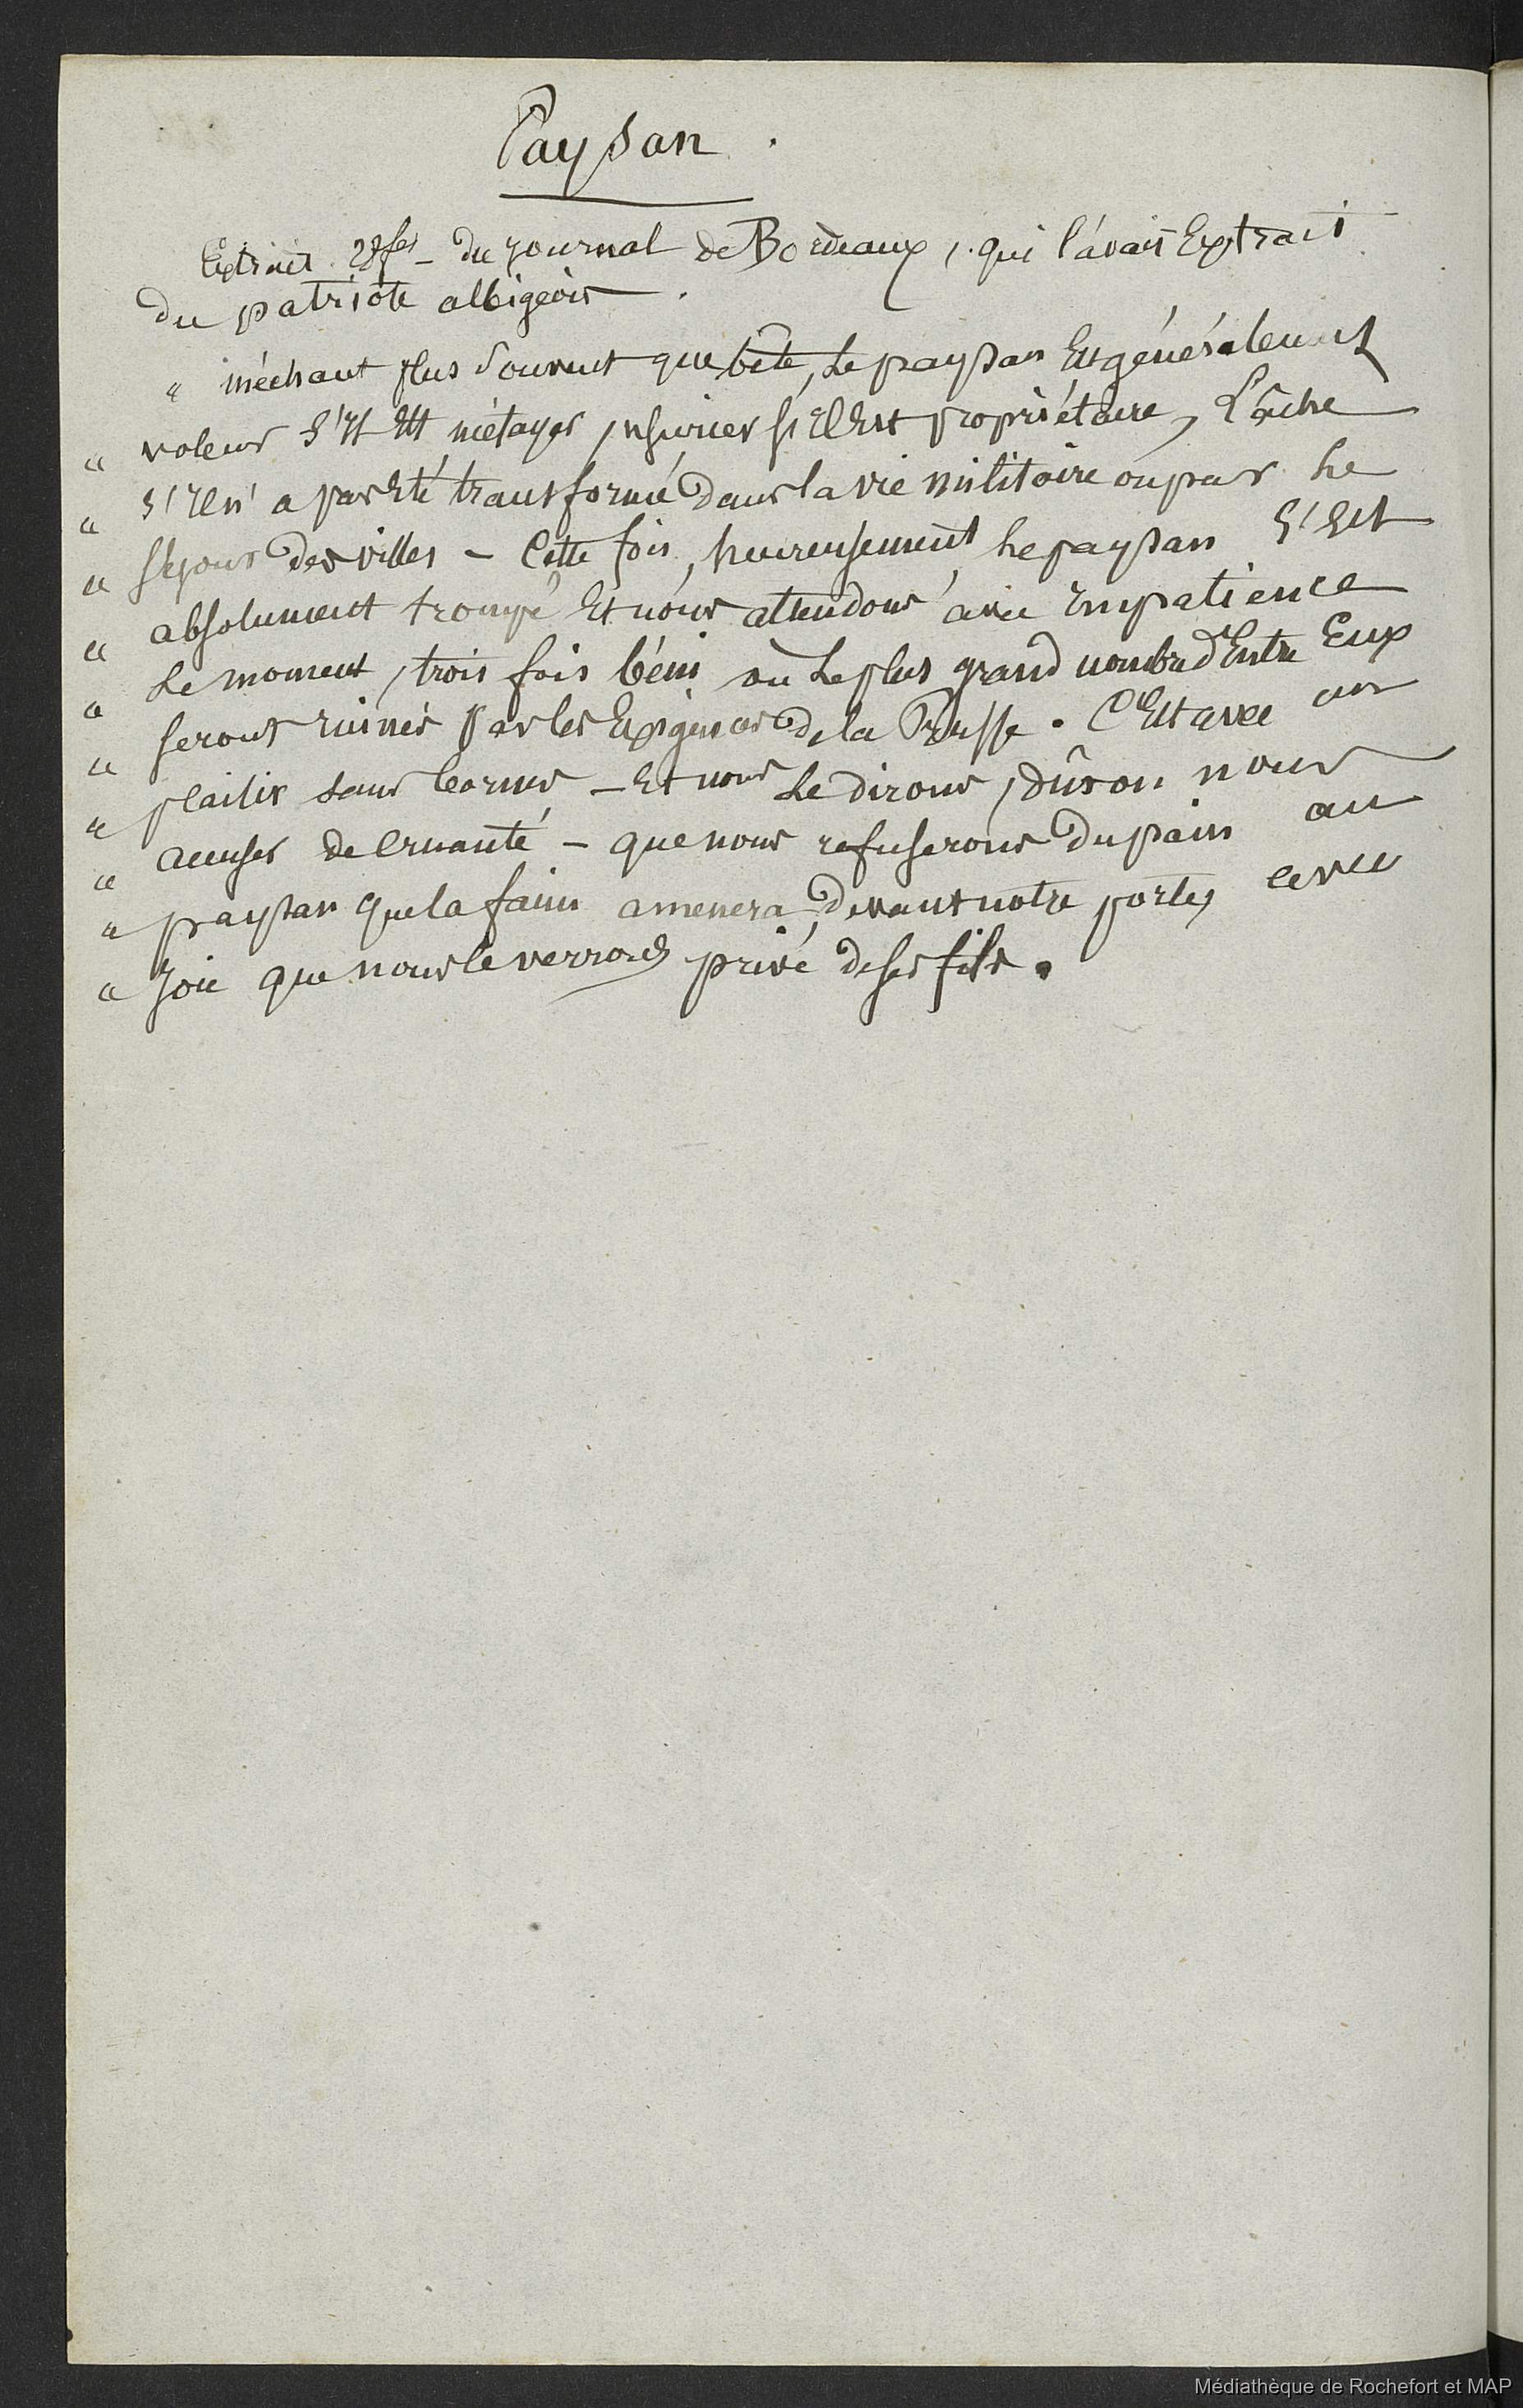 Paysan.
Extrait 28 fer - du journal de Bordeaux, qui l'avait Extrait
du patriote albigeois.
" méchant plus souvent que bête, le paysan Est généralement
" voleur s'Il Est métayer, usurier s'Il Est propriétaire, Lâche
" s'Il n'a pas Eté transformé dans la vie militaire ou par le
" séjour des villes - Cette fois, heureusement le paysan s'Est
" absolument trompé Et nous attendons avec Impatience
" le moment, trois fois béni où le plus grand nombre d'Entre Eux
" seront ruinés par les Exigences de la Prusse. C'Est avec un
" plaisir sans bornes - Et nous le dirons, dût-on nous
" accuser de cruauté - que nous refuserons du pain au
" paysan que la faim amenera devant notre porte, avec
" joie que nous le verrons privé de ses fils.
Médiathèque de Rochefort et MAP